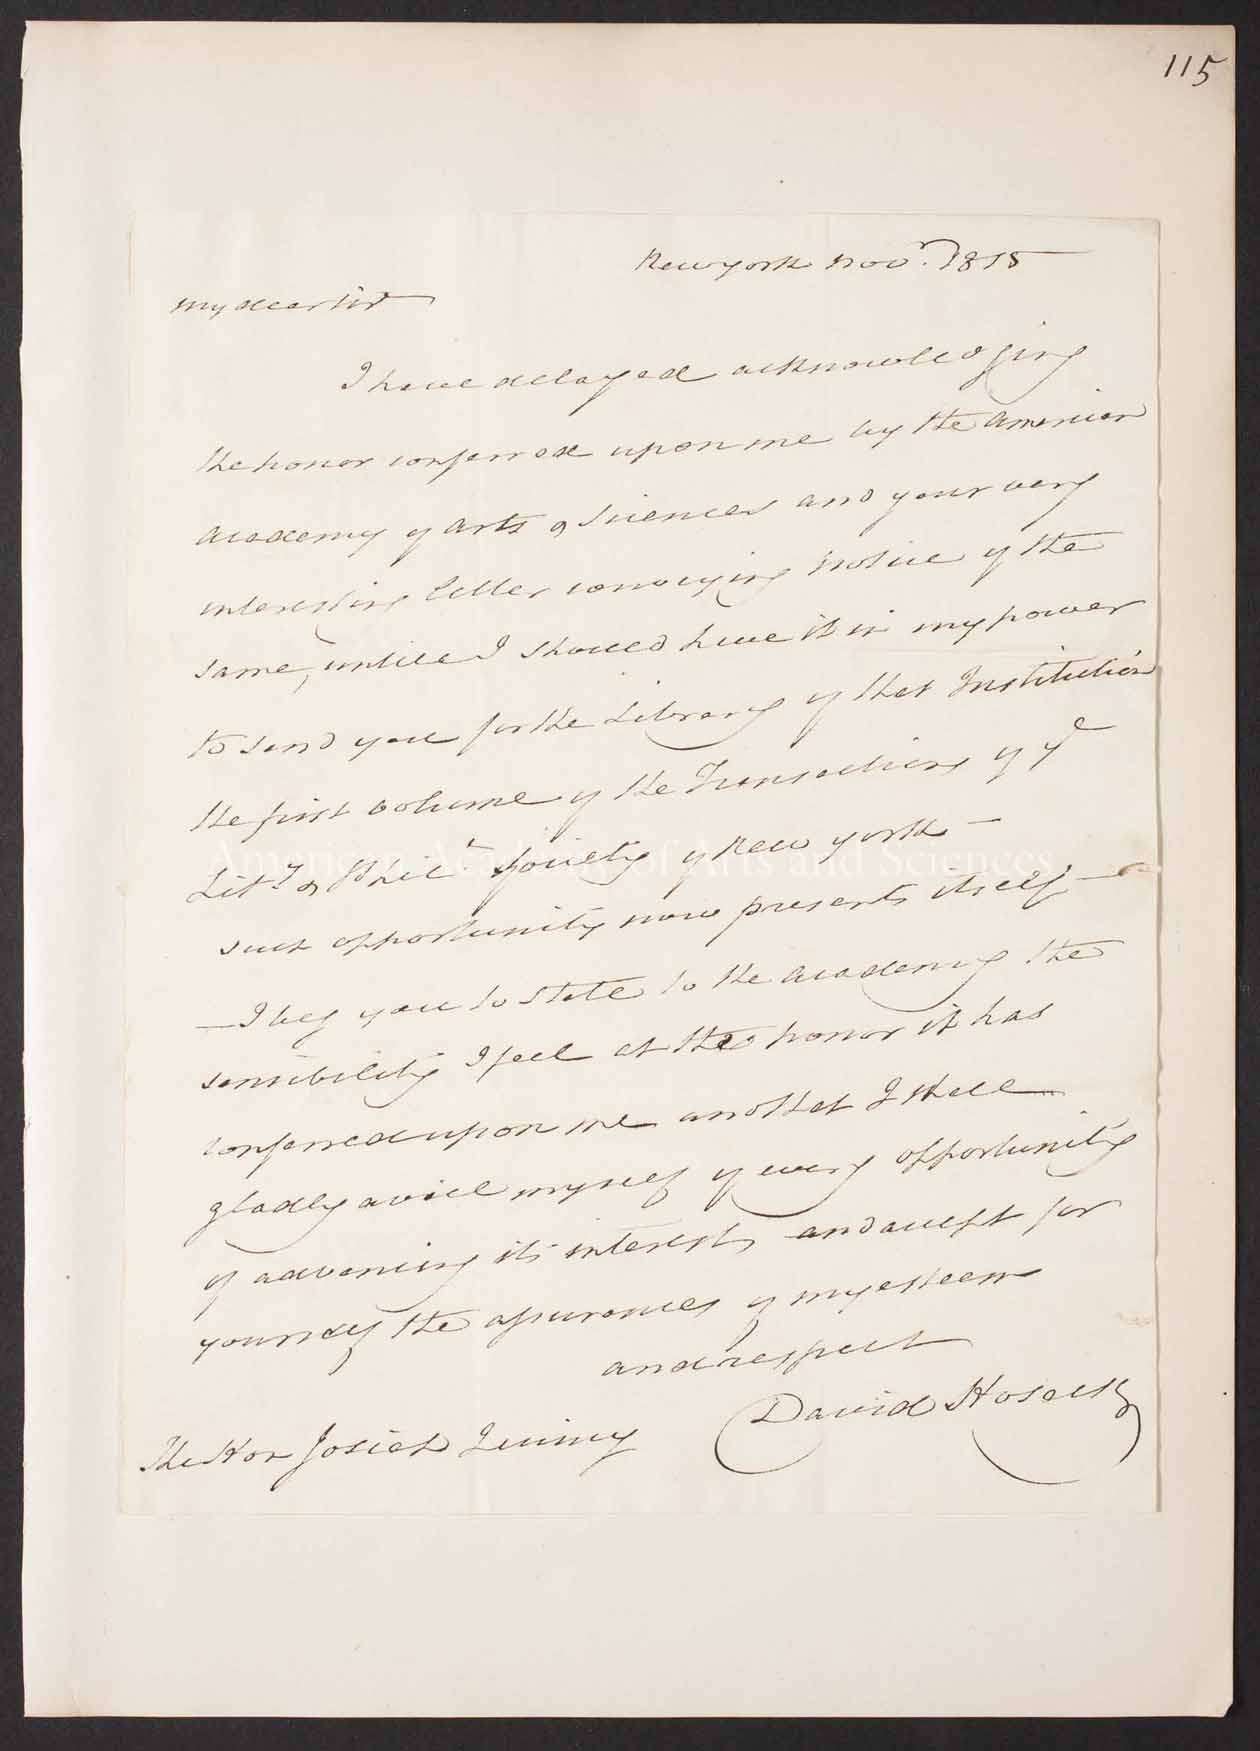 115
New york Novr. 1815
My dear Sir
I have delayed acknowledging
the honor conferred upon me by the American
Academy of Arts & Sciences and your very
interesting letter conveying notice of the
same, untill I should have it in my power
to send you for the Library of that Institution
the first volume of the Transactions of ye
Lity. & Phil. Society of New york –
such opportunity now presents itself –
– I beg you to state to the Academy the
sensibility I feel at the honor it has
conferred upon me and that I shall
gladly avail myself of every opportunity
of advancing its interests and accept for
yourself the assurances of my esteem
and respect
David Hosack
The Hon Josiah Quincy
American Academy of Arts and Sciences